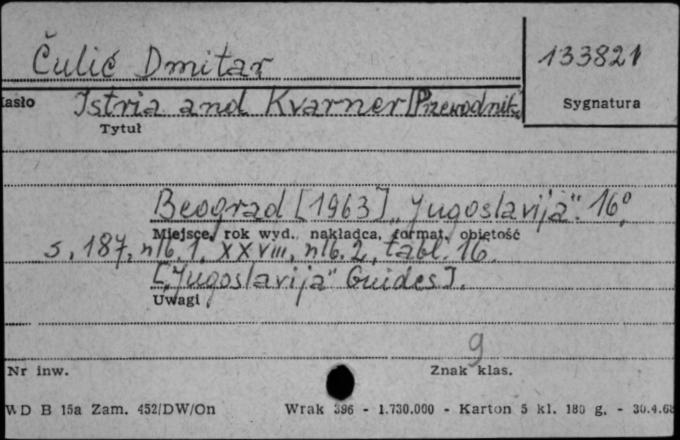 Čulić Dmitar
133821
asło Istria and Kvarner [Przewodnik]
Sygnatura
Tytuł
Beograd [1963] „Jugoslavija". 16°
Miejsce, rok wyd., nakładca, format, objętość
s. 187, nlb. 1, XXVIII, nlb. 2, tabl. 16.
[„Jugoslavija" Guides].
Uwagi
9
Nr inw.
Znak klas.
WD B 15a Zam. 452/DW/On Wrak 396 - 1.730.000 - Karton 5 kl. 180 g. - 30.4.68